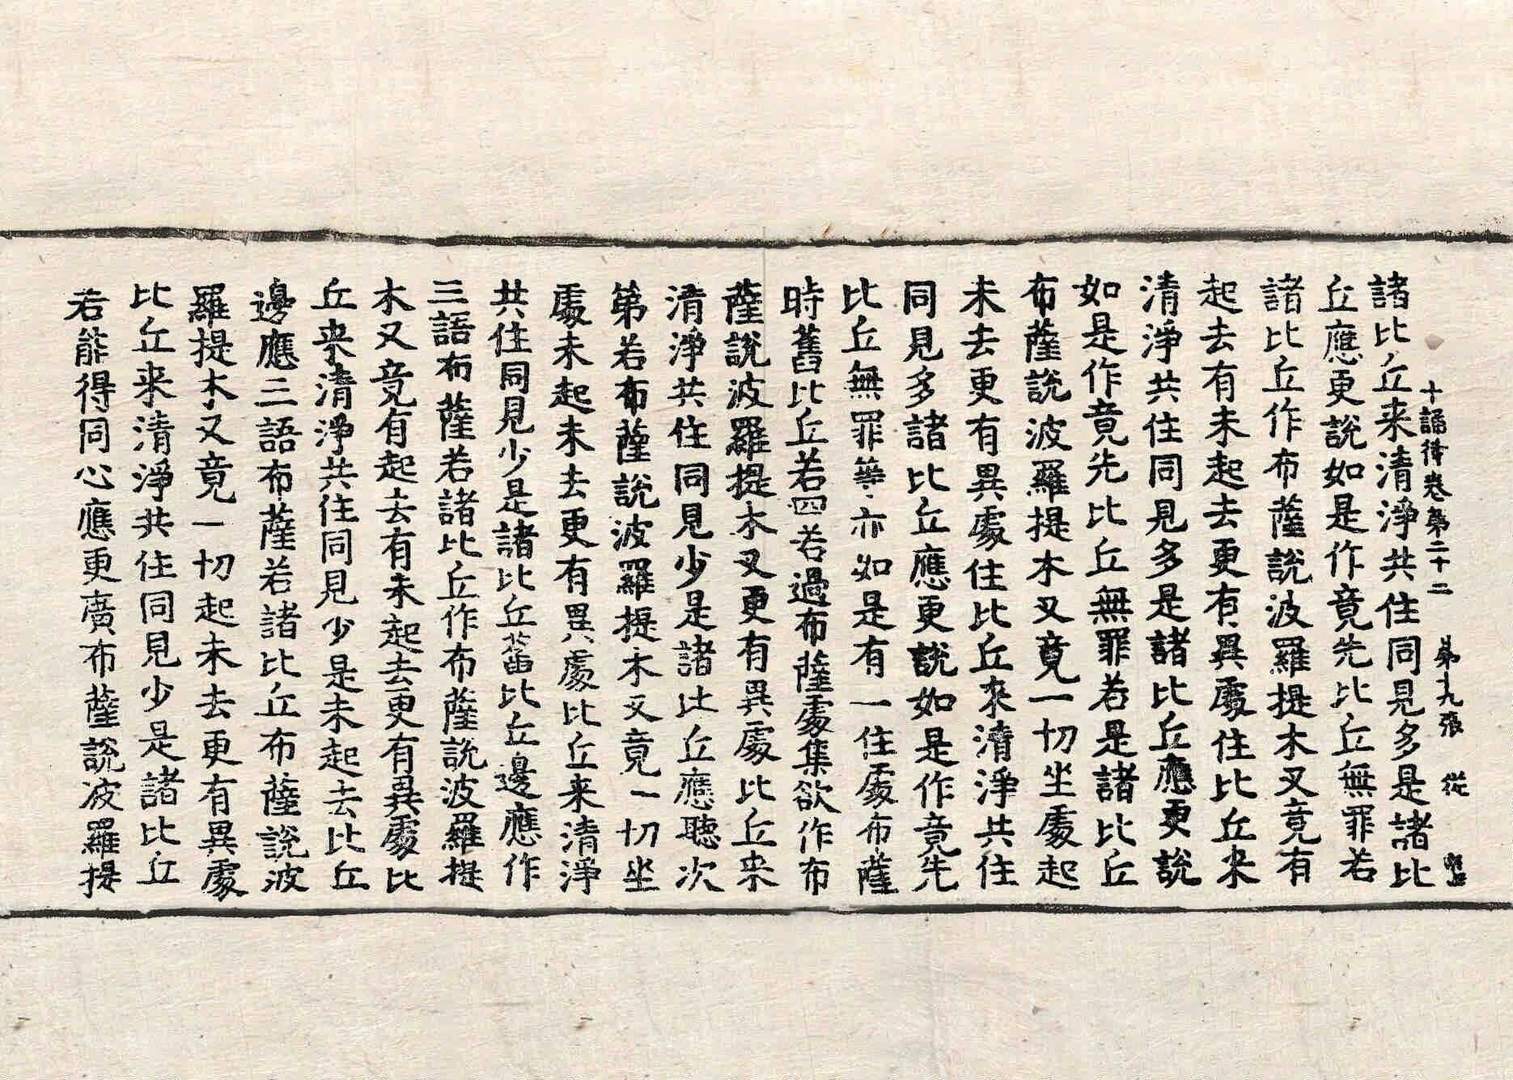 十誦律卷第二十二 第十九張 從
諸比丘来清淨共住同見多是諸比
丘應更說如是作竟先比丘無罪若
諸比丘作布薩說波羅提木叉竟有
起去有未起去更有異處住比丘来
清淨共住同見多是諸比丘應更說
如是作竟先比丘無罪若是諸比丘
布薩說波羅提木叉竟一切坐處起
未去更有異處住比丘來清淨共住
同見多諸比丘應更說如是作竟先
比丘無罪等亦如是有一住處布薩
時舊比丘若四若過布薩處集欲作布
薩說波羅提木叉更有異處比丘来
清淨共住同見少是諸比丘應聽次
第若布薩說波羅提木叉竟一切坐
處未起未去更有異處比丘来清淨
共住同見少是諸比丘舊比丘邊應作
三語布薩若諸比丘作布薩說波羅提
木叉竟有起去有未起去更有異處比
丘来清淨共住同見少是未起去比丘
邊應三語布薩若諸比丘布薩說波
羅提木叉竟一切起未去更有異處
比丘来清淨共住同見少是諸比丘
若能得同心應更廣布薩說波羅提